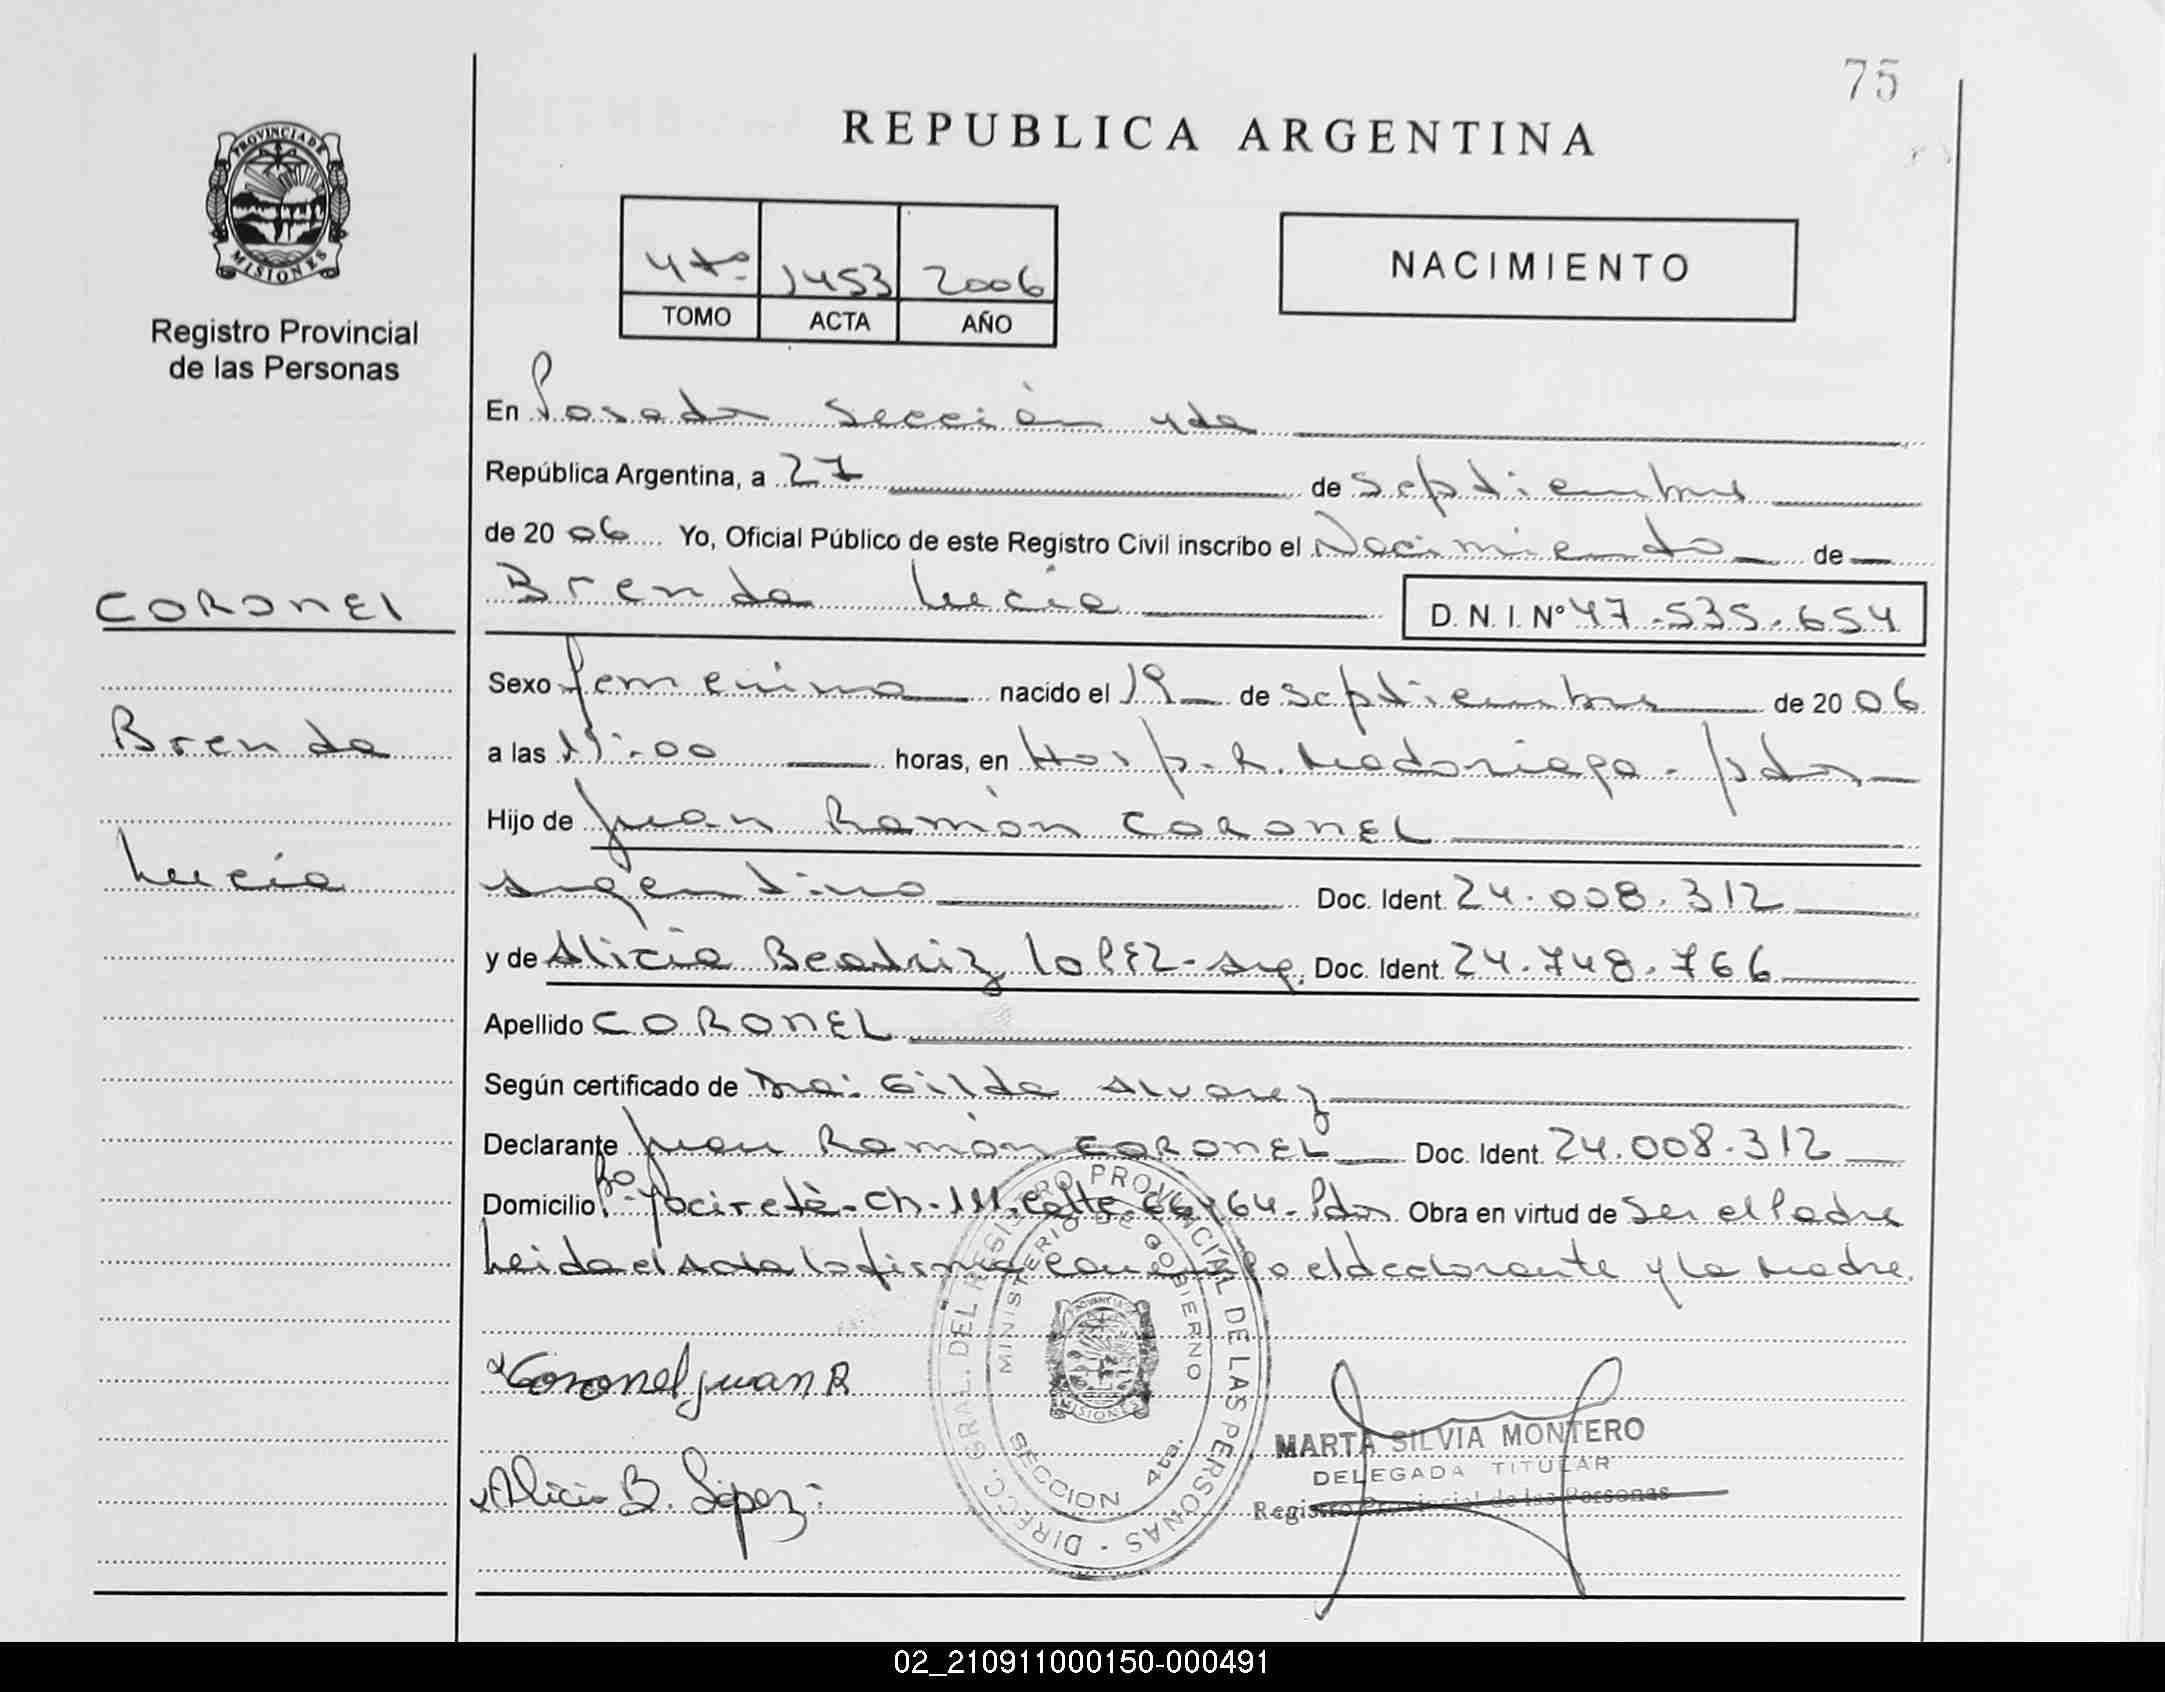 75
REPUBLICA ARGENTINA
PROVINCIA DE
MISIONES
Registro Provincial
de las Personas
4to 1453 2006
TOMO ACTA AÑO
NACIMIENTO
En Posadas Sección 4ta
República Argentina, a 27 de Septiembre
de 20 06 Yo, Oficial Público de este Registro Civil inscribo el Nacimiento de
CORONEL
Brenda Lucía
D. N. I. Nº 47.535.654
Sexo femenino nacido el 19 de Septiembre de 20 06
Brenda
a las horas, en Hosp. R. Madariaga - Pdas
Hijo de Juan Ramón CORONEL
Lucía
Argentino Doc. Ident. 24.008.312
y de Alicia Beatriz LOPEZ - Arg. Doc. Ident. 24.748.766
Apellido CORONEL
Según certificado de Dra: Gilda Alvarez
Declarante Juan Ramón CORONEL Doc. Ident. 24.008.312
Domicilio Bº Yacireta - Ch. Calle 64 - Pdas Obra en virtud de Ser el Padre
Leida el Acta la firma conmigo el declarante y la Madre.
Coronel juan R
Alicia B. López
DIRECC. GRAL. DEL REGISTRO PROVINCIAL DE LAS PERSONAS -
MINISTERIO DE GOBIERNO
SECCION 4ta.
MISIONES
MARTA SILVIA MONTERO
DELEGADA TITULAR
Registro Provincial de las Personas
02_210911000150-000491